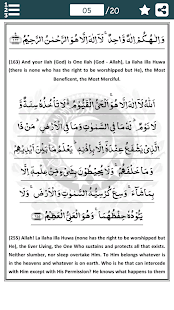 05 /20
وَإِلَٰهُكُمْ إِلَٰهٌ وَاحِدٌ ۖ لَا إِلَٰهَ إِلَّا هُوَ الرَّحْمَٰنُ الرَّحِيمُ
(163) And your Ilah (God) is One Ilah (God - Allah), La ilaha illa Huwa
(there is none who has the right to be worshipped but He), the Most
Beneficent, the Most Merciful.
اللَّهُ لَا إِلَٰهَ إِلَّا هُوَ الْحَيُّ الْقَيُّومُ ۚ لَا تَأْخُذُهُ سِنَةٌ وَلَا
نَوْمٌ ۚ لَهُ مَا فِي السَّمَاوَاتِ وَمَا فِي الْأَرْضِ ۗ مَنْ ذَا
الَّذِي يَشْفَعُ عِنْدَهُ إِلَّا بِإِذْنِهِ ۚ يَعْلَمُ مَا بَيْنَ
أَيْدِيهِمْ وَمَا خَلْفَهُمْ ۖ وَلَا يُحِيطُونَ بِشَيْءٍ مِنْ عِلْمِهِ إِلَّا
بِمَا شَاءَ ۚ وَسِعَ كُرْسِيُّهُ السَّمَاوَاتِ وَالْأَرْضَ ۖ وَلَا
يَئُودُهُ حِفْظُهُمَا ۚ وَهُوَ الْعَلِيُّ الْعَظِيمُ
(255) Allah! La ilaha illa Huwa (none has the right to be worshipped but
He), the Ever Living, the One Who sustains and protects all that exists.
Neither slumber, nor sleep overtake Him. To Him belongs whatever is
in the heavens and whatever is on earth. Who is he that can intercede
with Him except with His Permission? He knows what happens to them